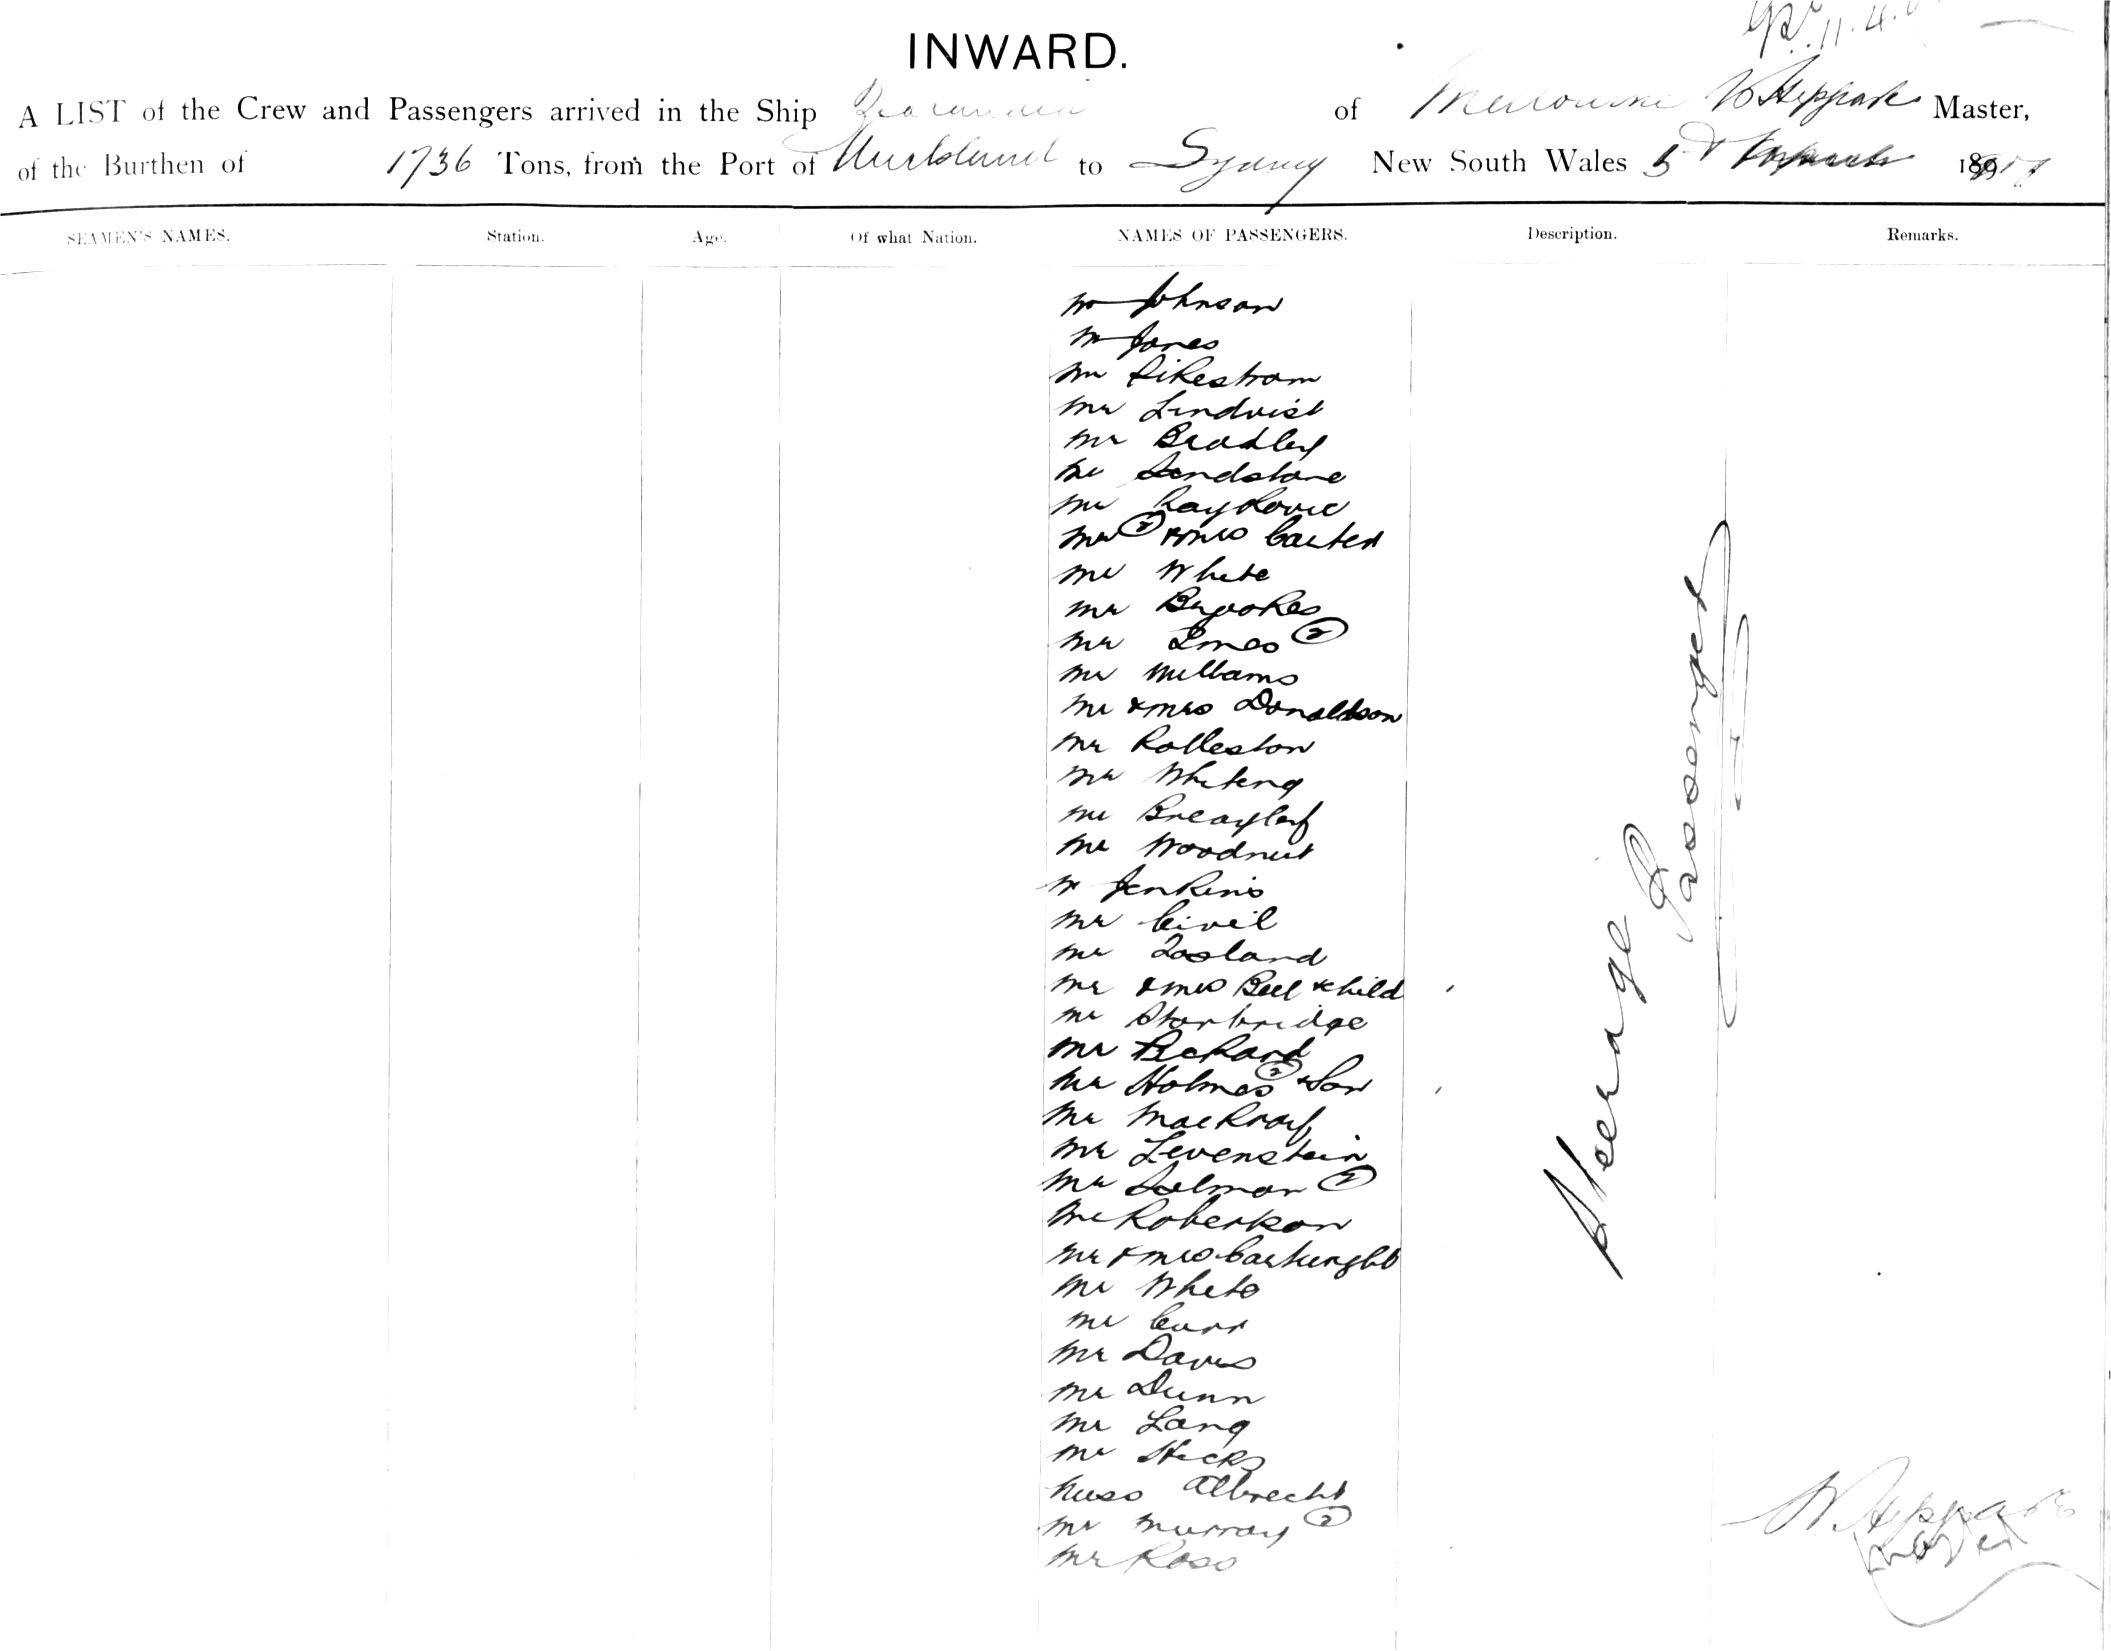 11.4.
INWARD.
A LIST of the Crew and Passengers arrived in the Ship Zealandia of Melbourne Master,
of the Burthen of 1736 Tons, from the Port of Auckland to Sydney New South Wales 5
SEAMEN'S NAMES. Station. Age. Of what Nation. NAMES OF PASSENGERS. Description. Remarks.
Mr Johnson
Mr Jones
Mr Rikestrom
Mr Lindvist
Mr Bradley
Mr Sandstone
Mr
Mr ② & Mrs Carter
Mr White
Mr Brookes
Mr ②
Mr Williams
Mr & Mrs Donaldson
Mr Rolleston
Mr Whiting
Mr Breayley
Mr Woodnut
Mr Jenkins
Mr Civil
Mr Zosland
Mr & Mrs Bell & child
Mr Storbridge
Mr Pickard
Mr Holmes ② & Son
Mr
Mr Levenstein
Mr Salmon ②
Mr Robertson
Mr & Mrs Cartwright
Mr White
Mr Curr
Mr Davis
Mr Dunn
Mr Lang
Mr Hicks
Miss Albrecht
Mr Murray ②
Mr Ross
Steerage Passenger
Master